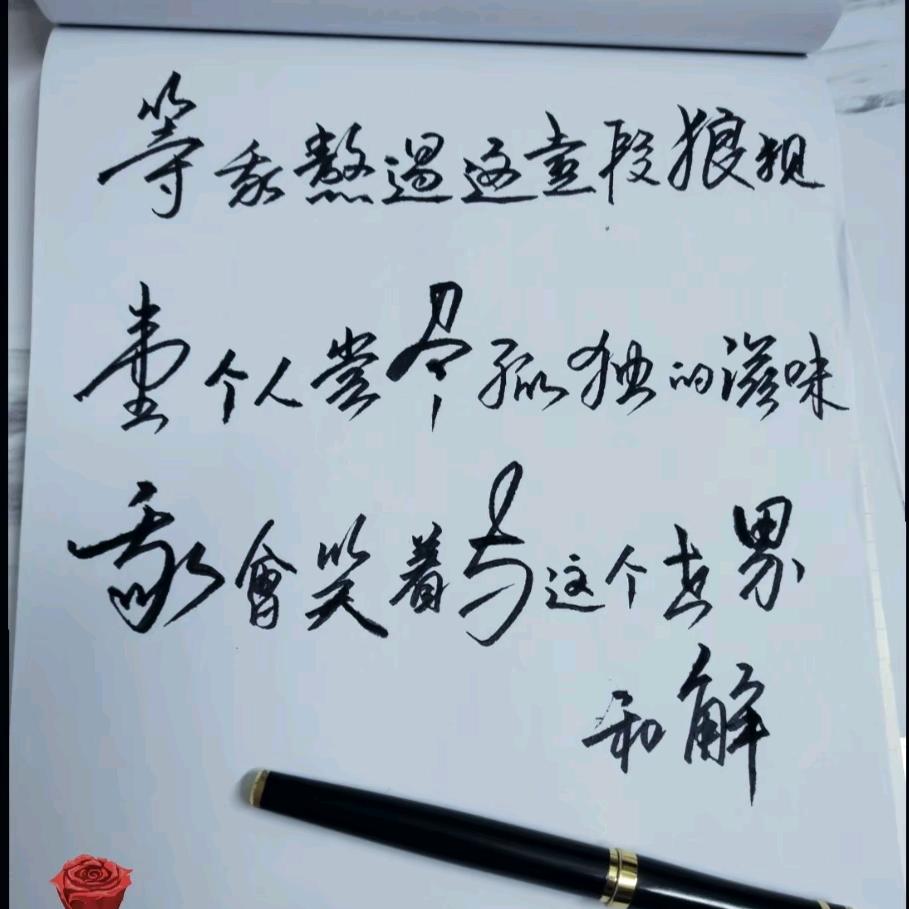 等我熬過这壹段狼狈
壹个人尝尽孤独的滋味
我會笑着与这个世界
和解